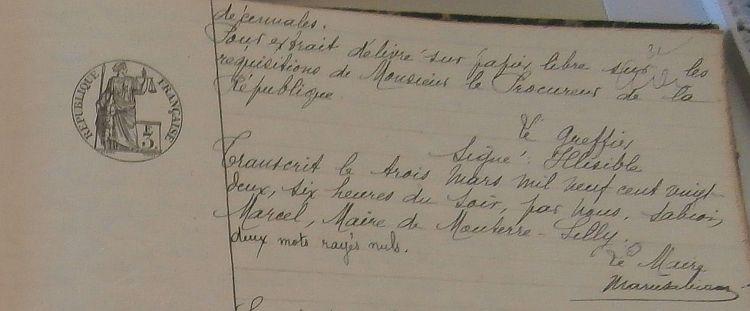 décennales.
Pour extrait délivré sur papier libre sur les
réquisitions de Monsieur le Procureur de la
République.
Le Greffier
Signé : Illisible
Transcrit le trois Mars mil neuf cent vingt
deux, six heures du soir, par nous, Sabion,
Marcel, Maire de Mouterre-Silly.
deux mots rayés nuls.
Le Maire
RÉPUBLIQUE FRANÇAISE